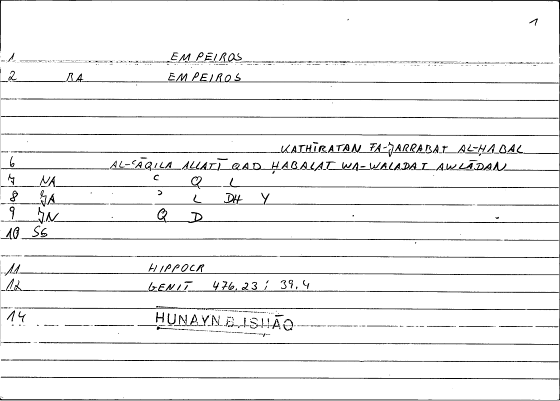 1
1 EMPEIROS
2 RA EMPEIROS
KATHĪRATAN FA-JARRABAT AL-ḤABAL
6 AL-ʿĀQILA ALLATĪ QAD ḤABALAT WA-WALADAT AWLĀDAN
7 NA ʿ Q L
8 JA ʾ L DH Y
9 JN Q D
10 SS
11 HIPPOCR
12 GENIT 476.23; 39.4
14 HUNAYN B. ISḤĀQ